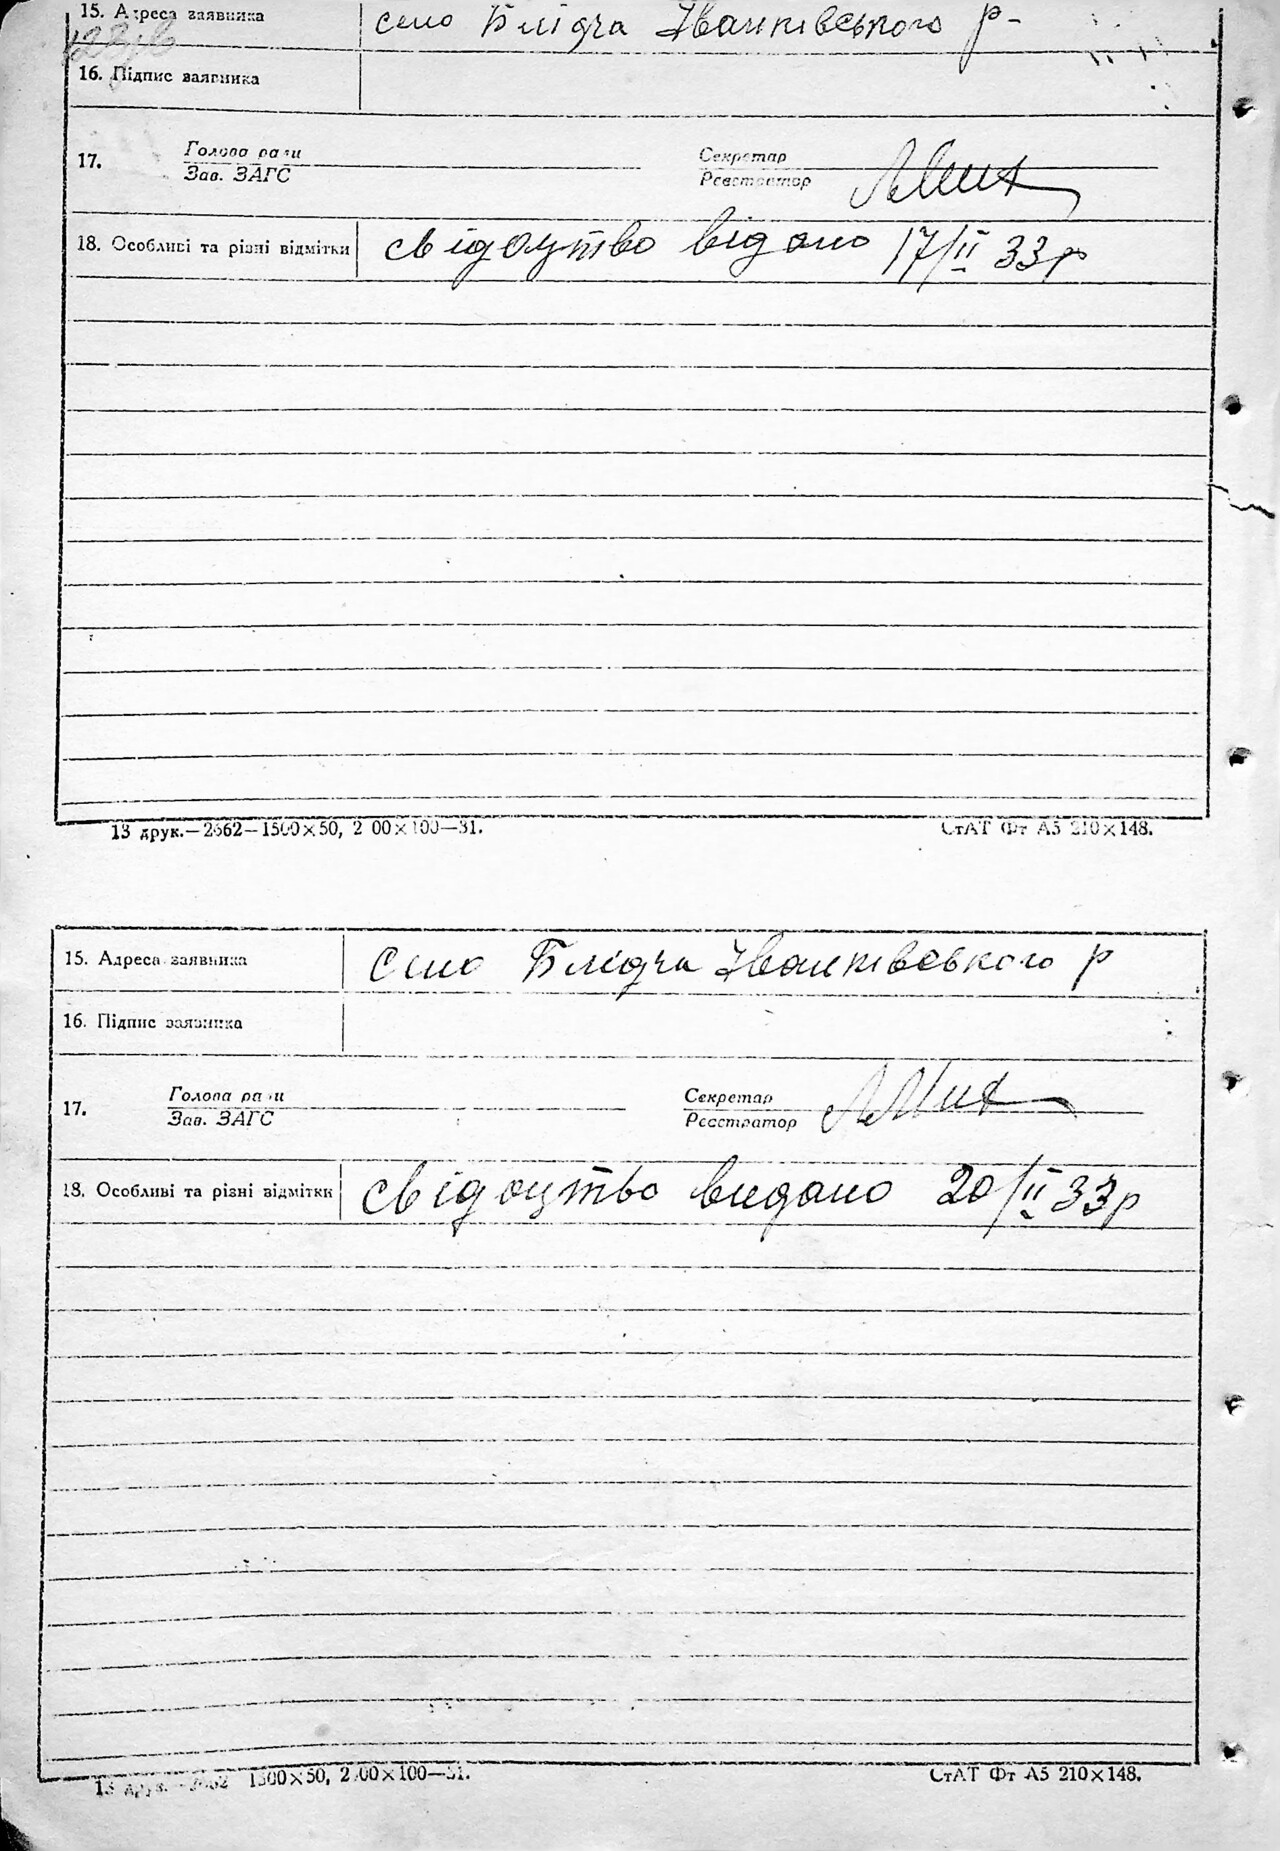 15. Адреса заявника село Блідча Іванківського р-
123/в
16. Підпис заявника
17. Голова ради Секретар
Зав. ЗАГС Реєстратор
18. Особливі та різні відмітки свідоцтво відано 17/II 33р
13 друк.—2662—1500×50, 2 00×100—31. СтАТ Фт А5 210×148.
15. Адреса заявника село Блідча Іванківського р
16. Підпис заявника
17. Голова ради Секретар
Зав. ЗАГС Реєстратор
18. Особливі та різні відмітки свідоцтво видано 20/II 33р
13 друк.—2662 1500×50, 2 00×100—31. СтАТ Фт А5 210×148.